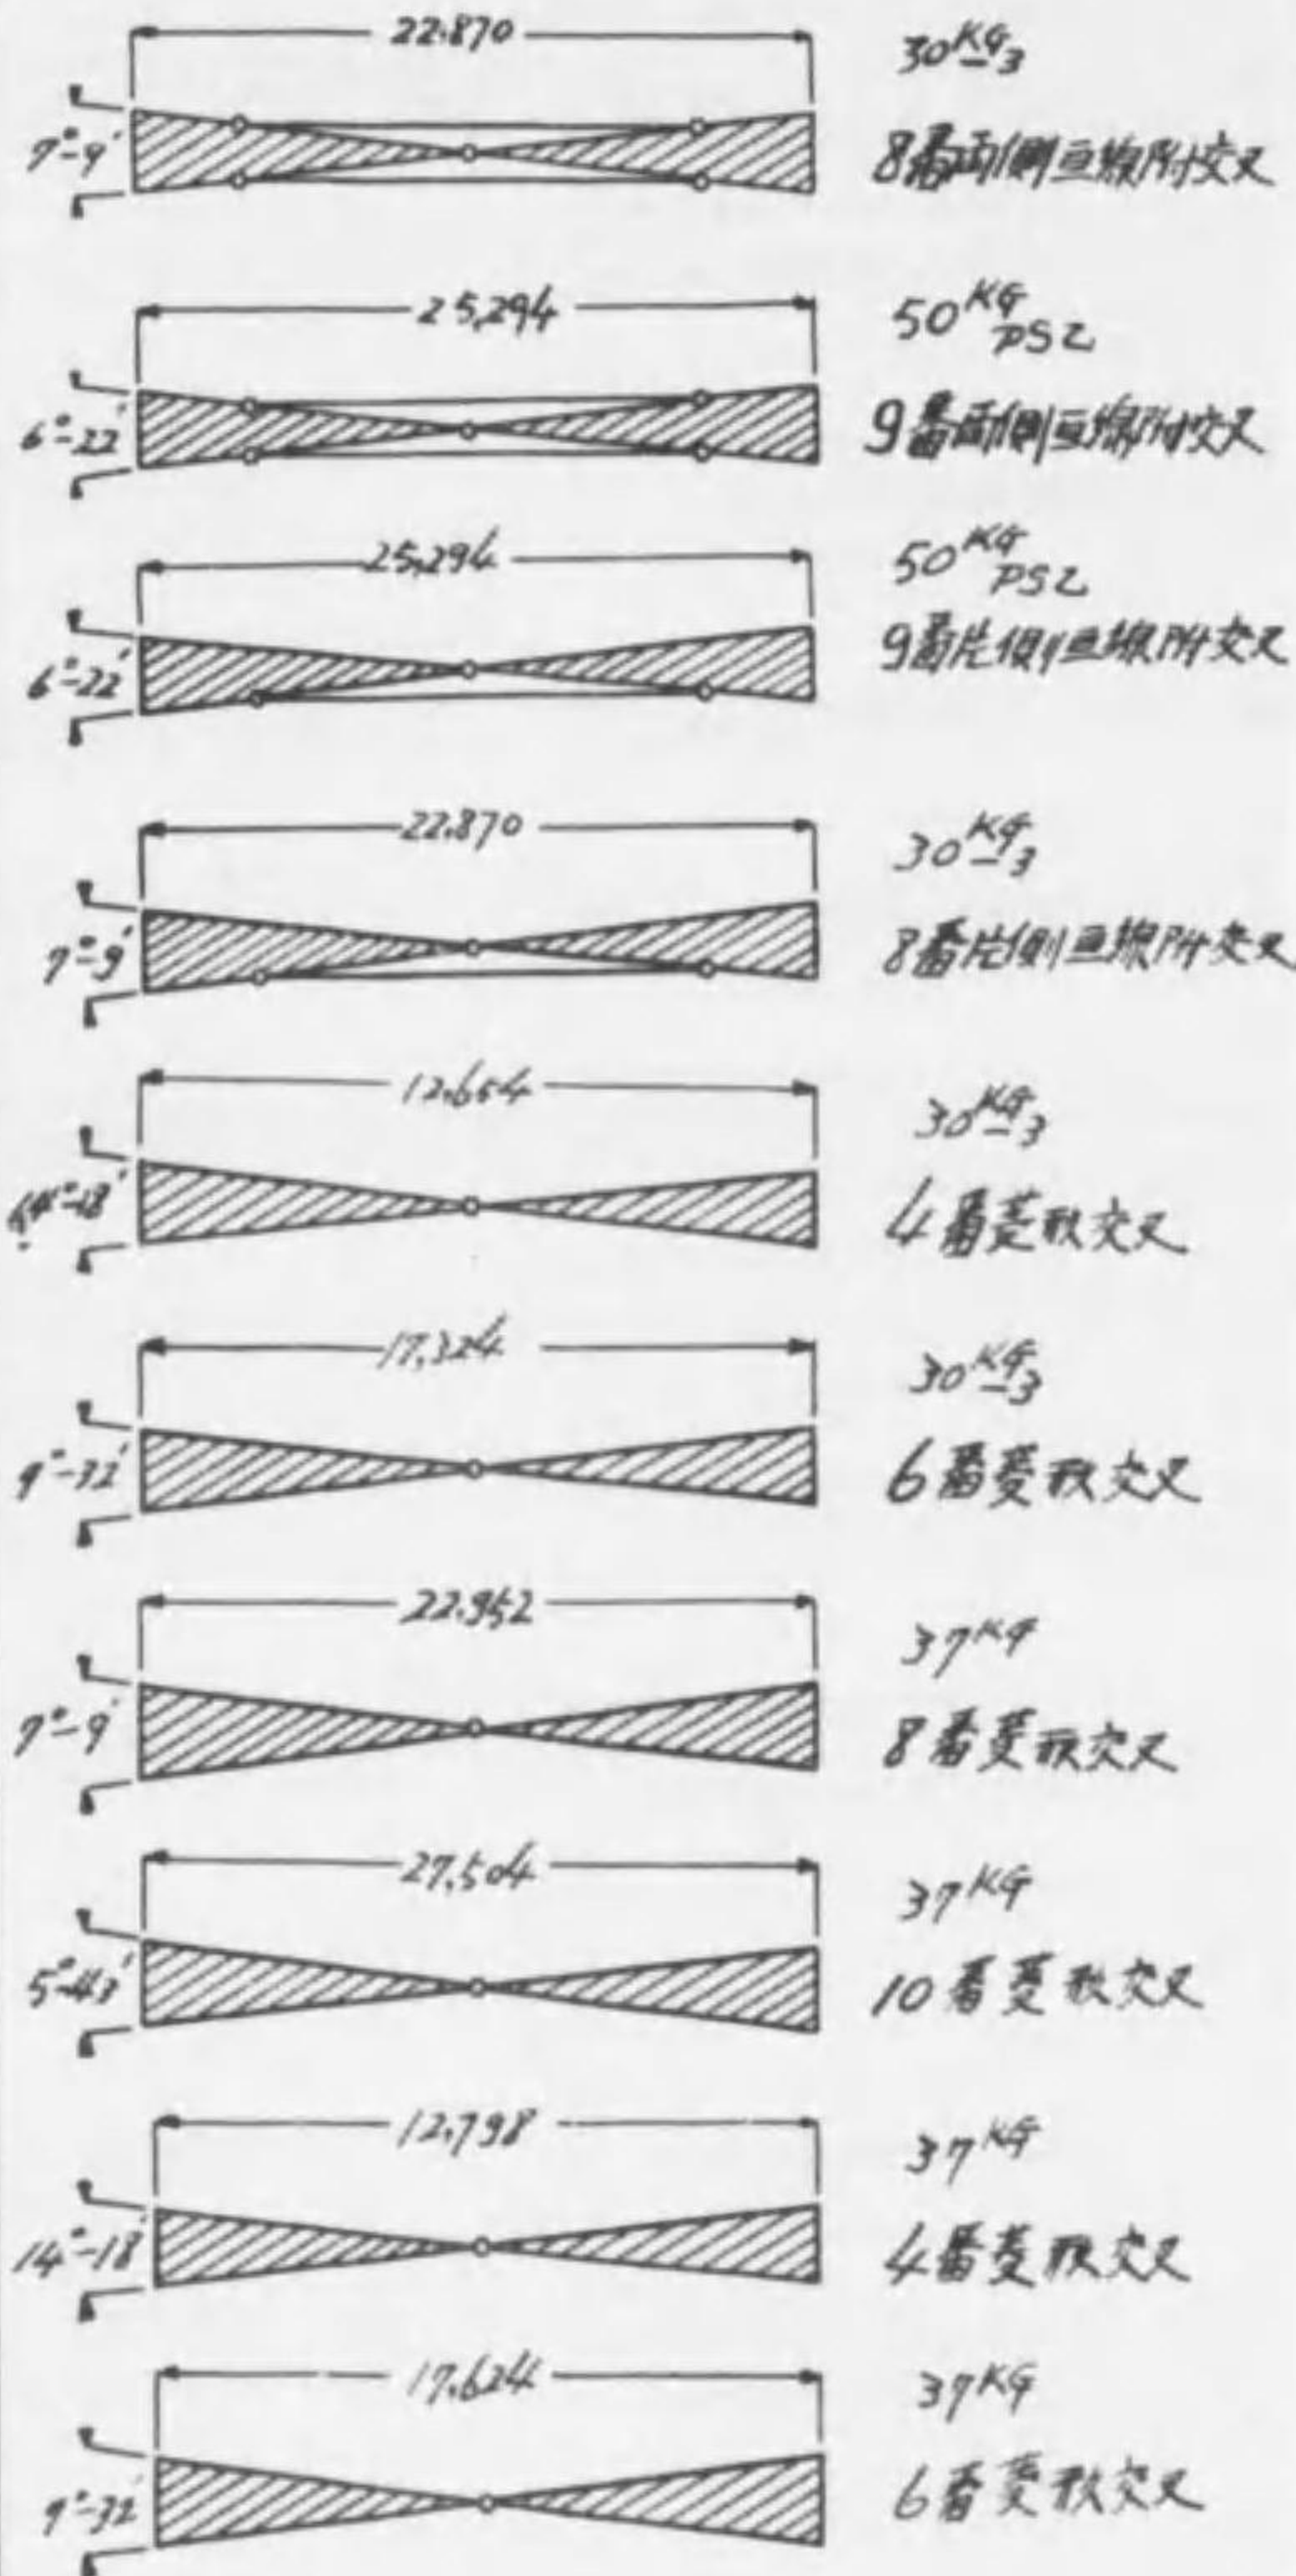 22.870
30KG-3
7°-9′
8番両側亘線附交叉
25,294
50KG
PS2
6°-22′
9番両側亘線附交叉
25,294
50KG
PS2
6°-22′
9番片側亘線附交叉
22.870
30KG-3
7°-9′
8番片側亘線附交叉
12.654
30KG-3
4番菱形交叉
17,324
30KG-3
9°-32′
6番菱形交叉
22.952
37KG
7°-9′
8番菱形交叉
27,504
37KG
5°-43′
10番菱形交叉
12.798
37KG
14°-18′
4番菱形交叉
17.624
37KG
9°-32′
6番菱形交叉